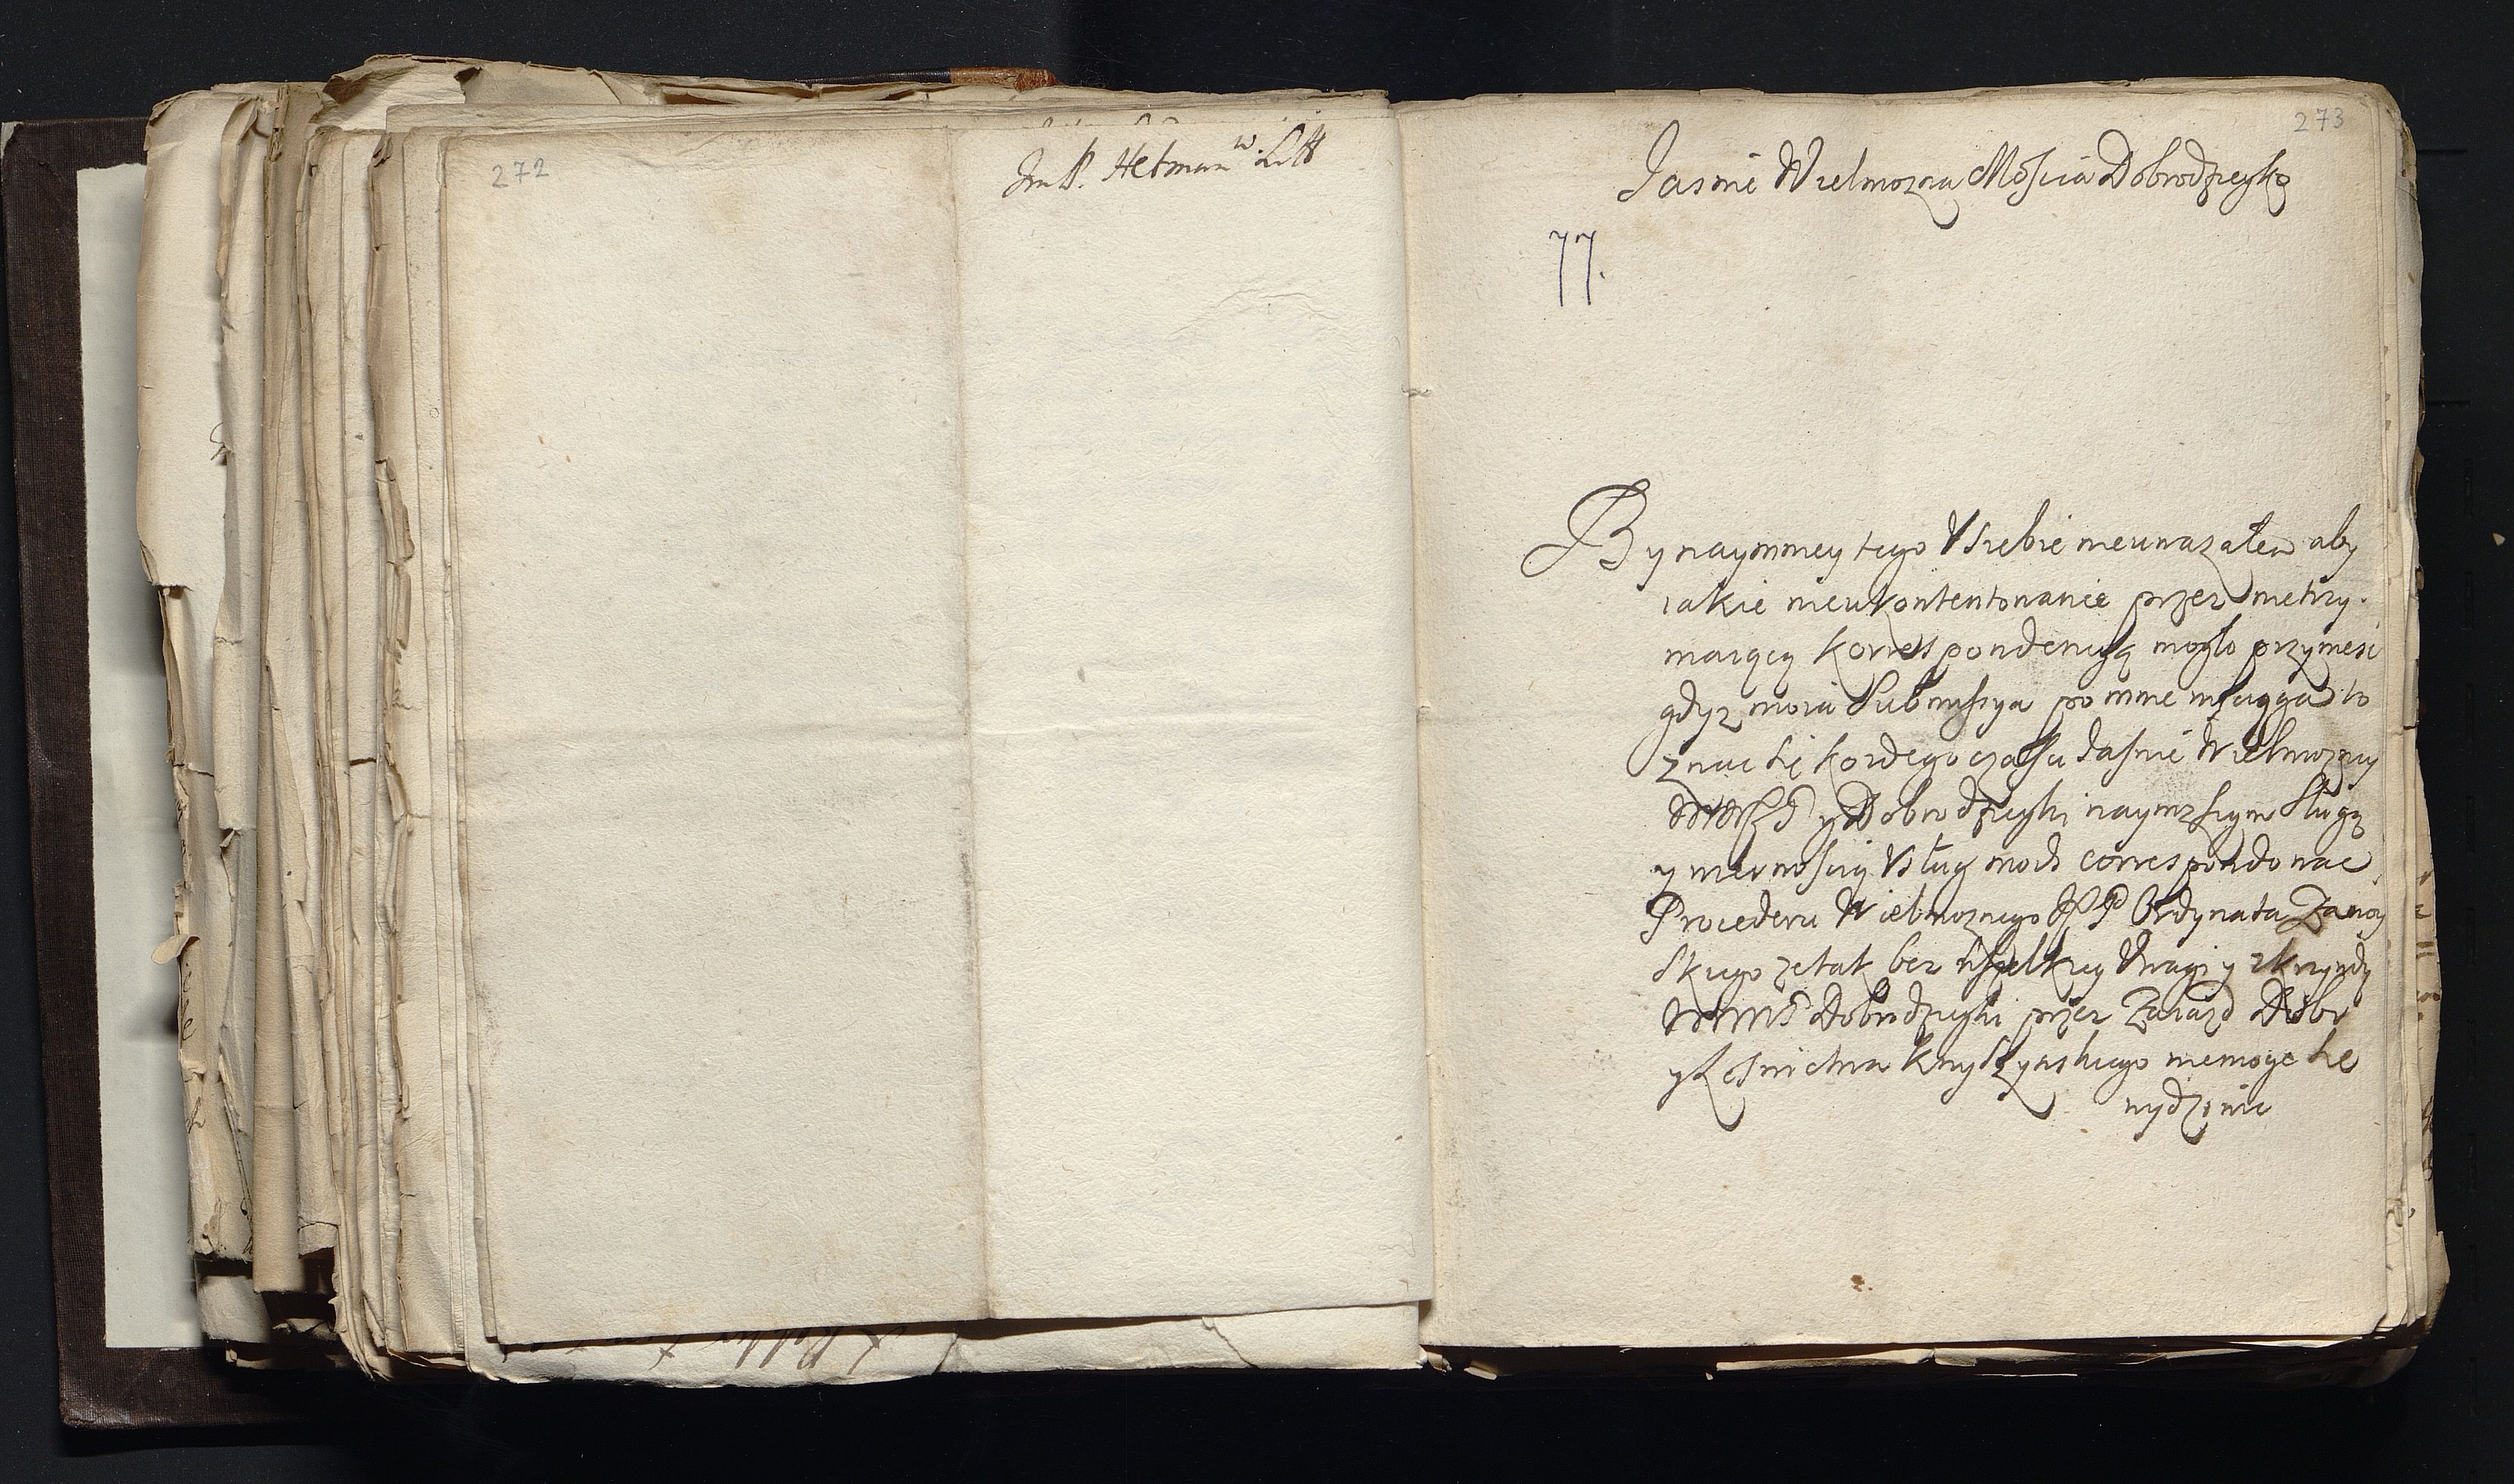 272
JmP. Hetman W. Litt
273
Jasnie Wielmozna Mościa Dobrodzieyko
77.
Bynaymniey tego Vsiebie nieuwazałem aby
iakie nieukontentowanie przez nietrzy-
maiącą korrespondencyą mogło przyniesc
gdyz moia Submissya po mnie to
znac się kozdego czassu Jasnie Wielmozney
WMP y Dobrodzieyki naynizszym Sługą
y wiernoscią Vsług moich correspondowac
Procederu Wielmoznego JP Ordynata Zamoy
skiego zetak bez wszelkiey Vwagi y zkrzywdą
WMMP Dobrodzieyki przez Zaiazd Dobr
y Lesnictwa Knyszynskiego niemoge się
wydziwic